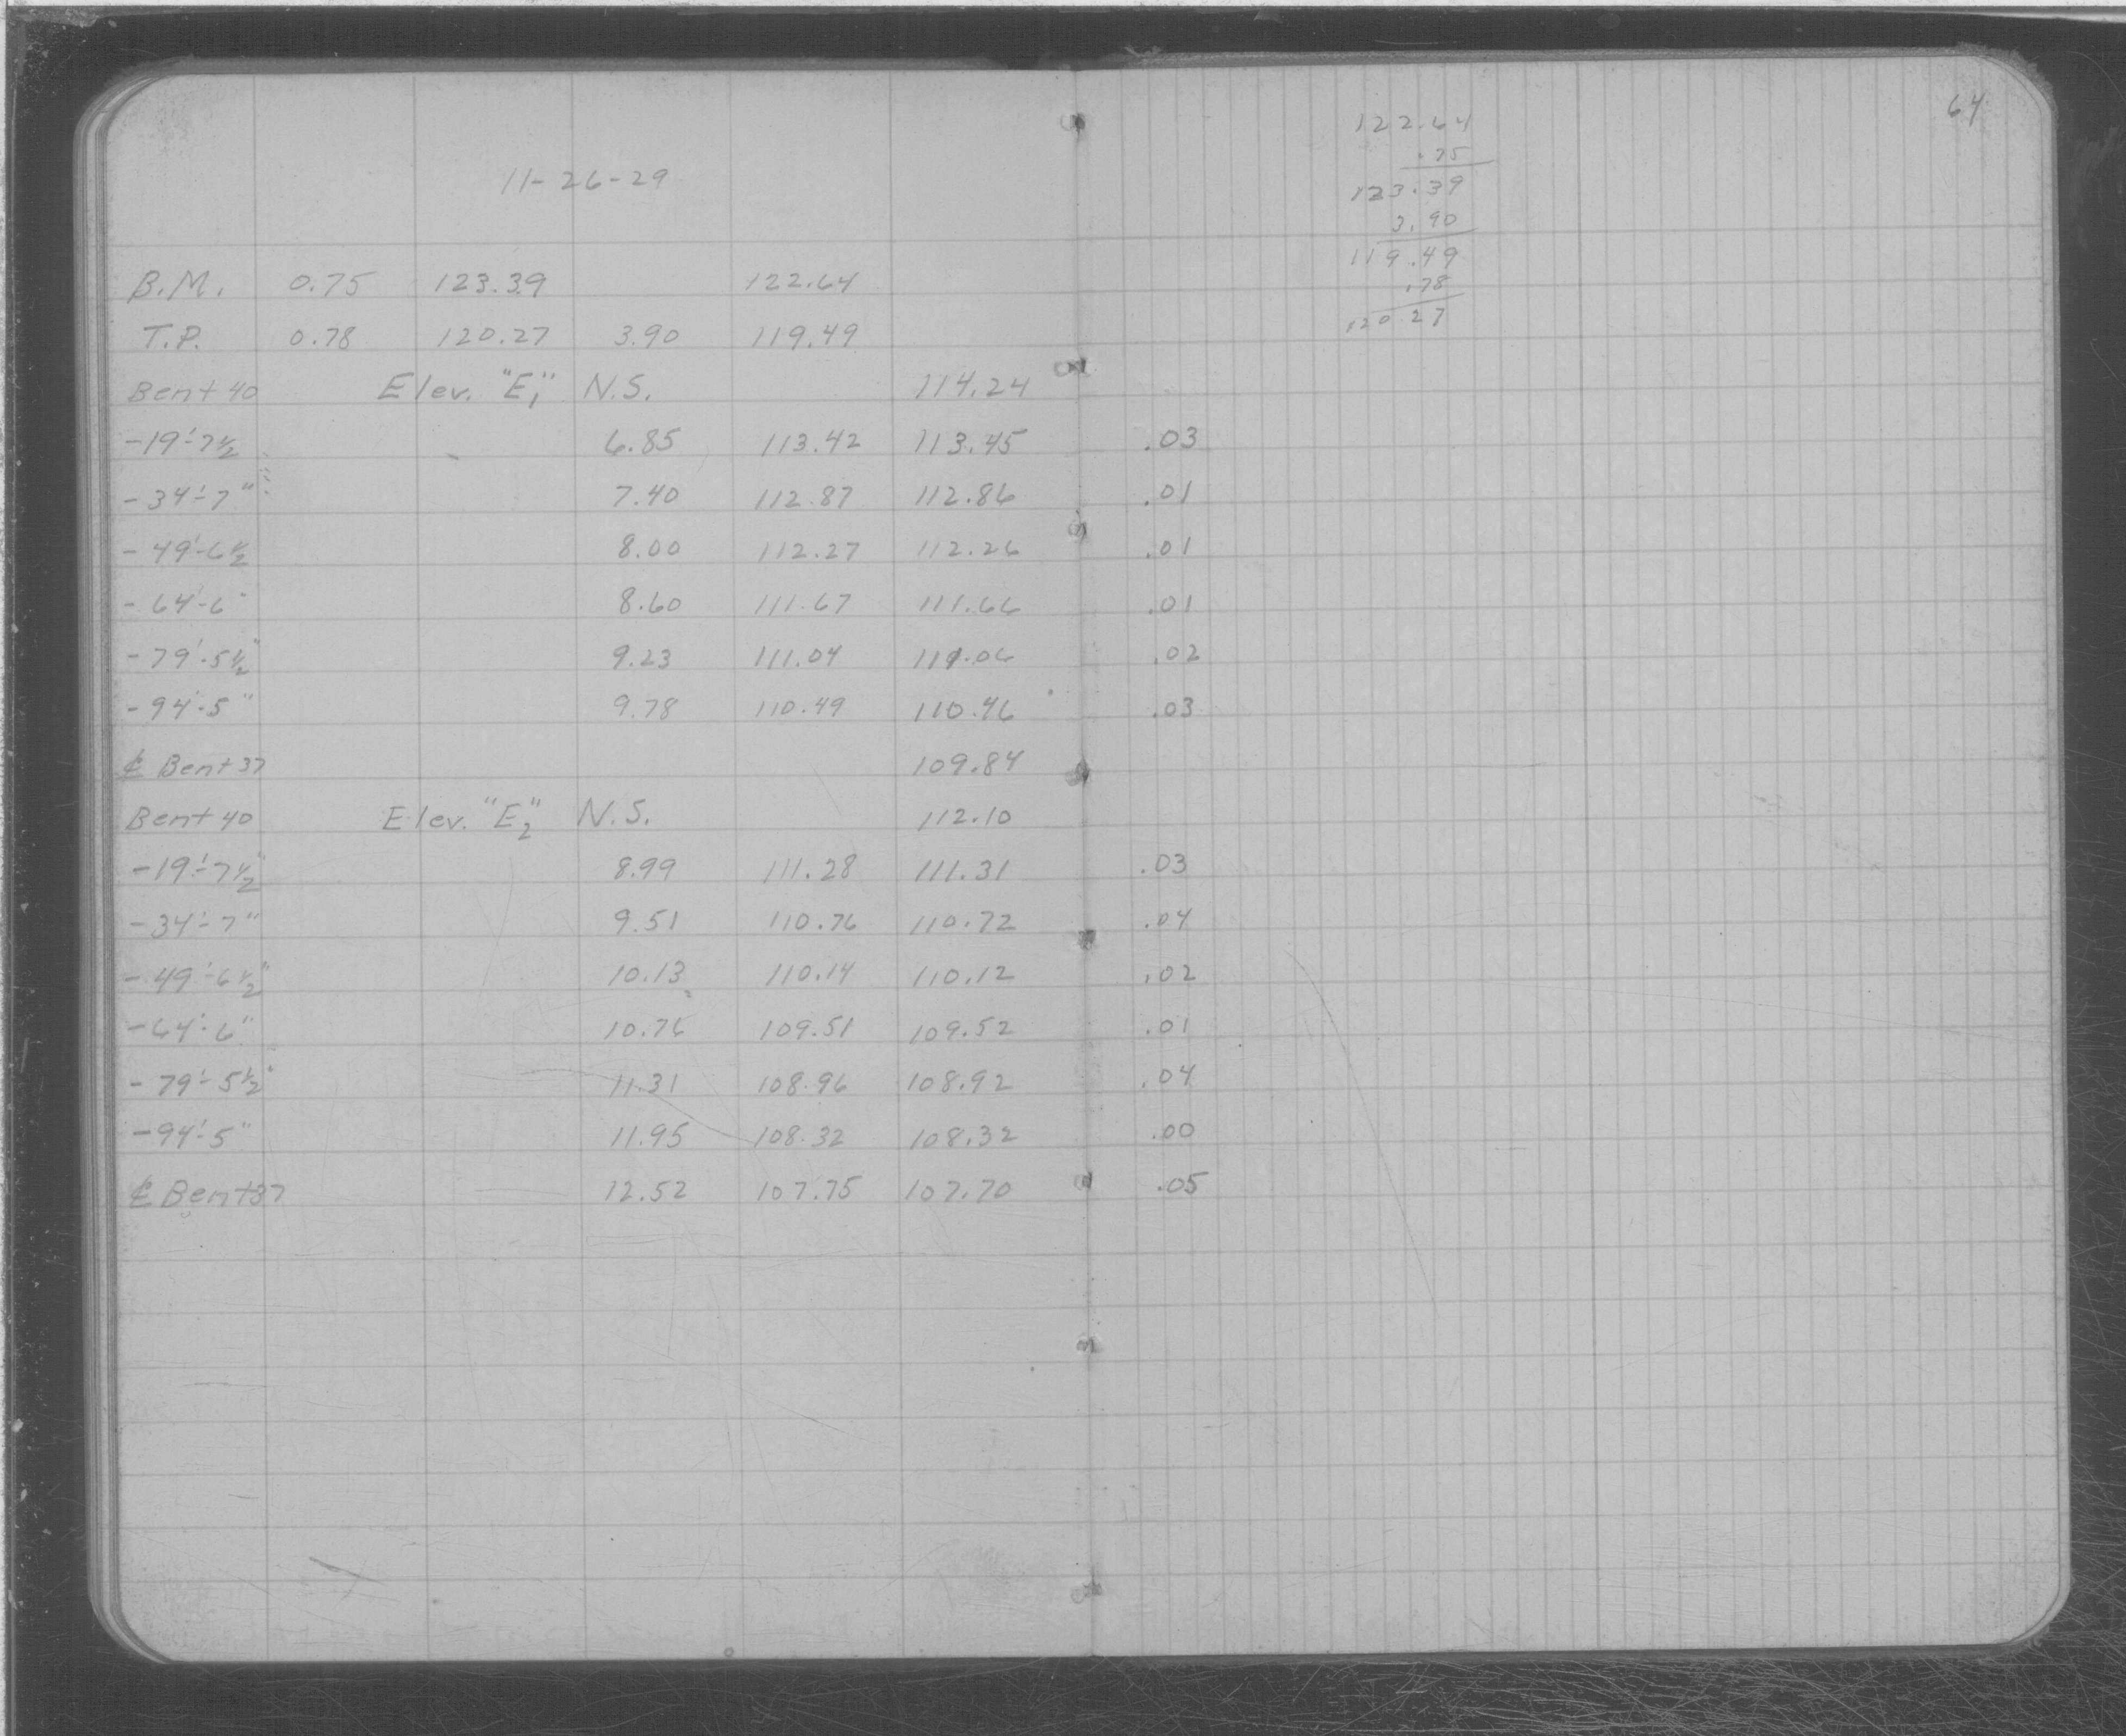 64
11-26-29
122.64
.75
123.39
3.90
119.49
.78
120.27
B.M. 0.75 123.39 122.64
T.P. 0.78 120.27 3.90 119.49
Bent 40 Elev. "E1" N.S. 114.24
-19'-7½ 6.85 113.42 113.45 .03
-34'-7" 7.40 112.87 112.86 .01
-49'-6½ 8.00 112.27 112.26 .01
-64'-6" 8.60 111.67 111.66 .01
-79'-5½" 9.23 111.04 111.06 .02
-94'-5" 9.78 110.49 110.46 .03
℄ Bent 37 109.84
Bent 40 Elev. "E2" N.S. 112.10
-19'-7½" 8.99 111.28 111.31 .03
-34'-7" 9.51 110.76 110.72 .04
-49'-6½" 10.13 110.14 110.12 .02
-64'-6" 10.76 109.51 109.52 .01
-79'-5½" 11.31 108.96 108.92 .04
-94'-5" 11.95 108.32 108.32 .00
℄ Bent 37 12.52 107.75 107.70 .05